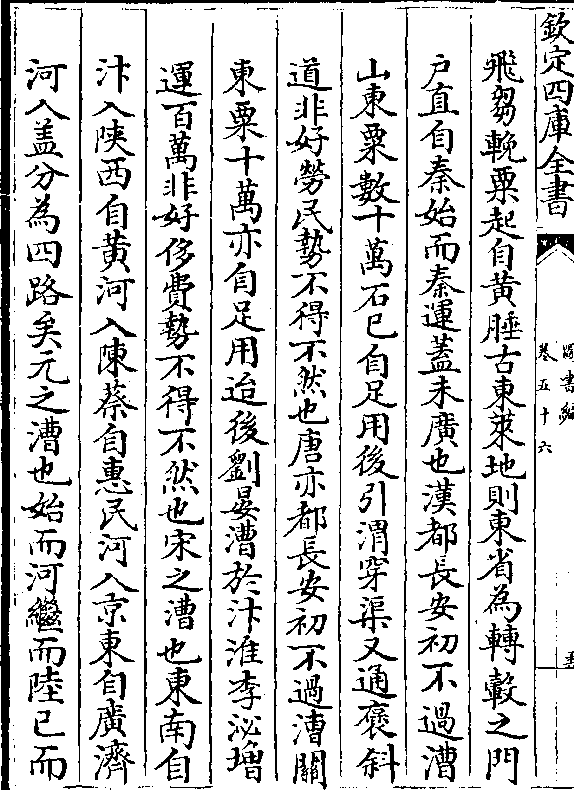 欽定四庫全書
圖書編
卷五十六
飛芻輓粟起自黄腄古東萊地則東省為轉轂之門
户直自秦始而秦運蓋未廣也漢都長安初不過漕
山東粟數十萬石已自足用後引渭穿渠又通褒斜
道非好勞民勢不得不然也唐亦都長安初不過漕關
東粟十萬亦自足用迨後劉晏漕於汴淮李泌增
運百萬非好侈費勢不得不然也宋之漕也東南自
汴入陜西自黄河入陳蔡自惠民河入京東自廣濟
河入盖分為四路矣元之漕也始而河繼而陸已而